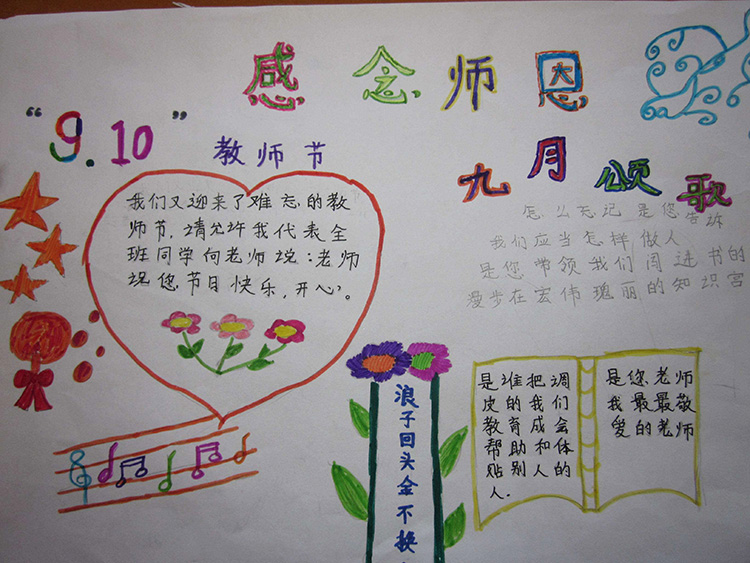 感念师恩
"9.10"
教师节
九月颂歌
我们又迎来了难忘的教
师节,请允许我代表全
班同学向老师说:老师
祝您节日快乐,开心。
怎么忘记是您告诉
我们应当怎样做人
是您带领我们闯进书的
漫步在宏伟瑰丽的知识宫
浪子回头金不换
是谁把调
皮的我们
教育成会
帮助和体
贴别人的
人.
是您老师
我最最敬
爱的老师